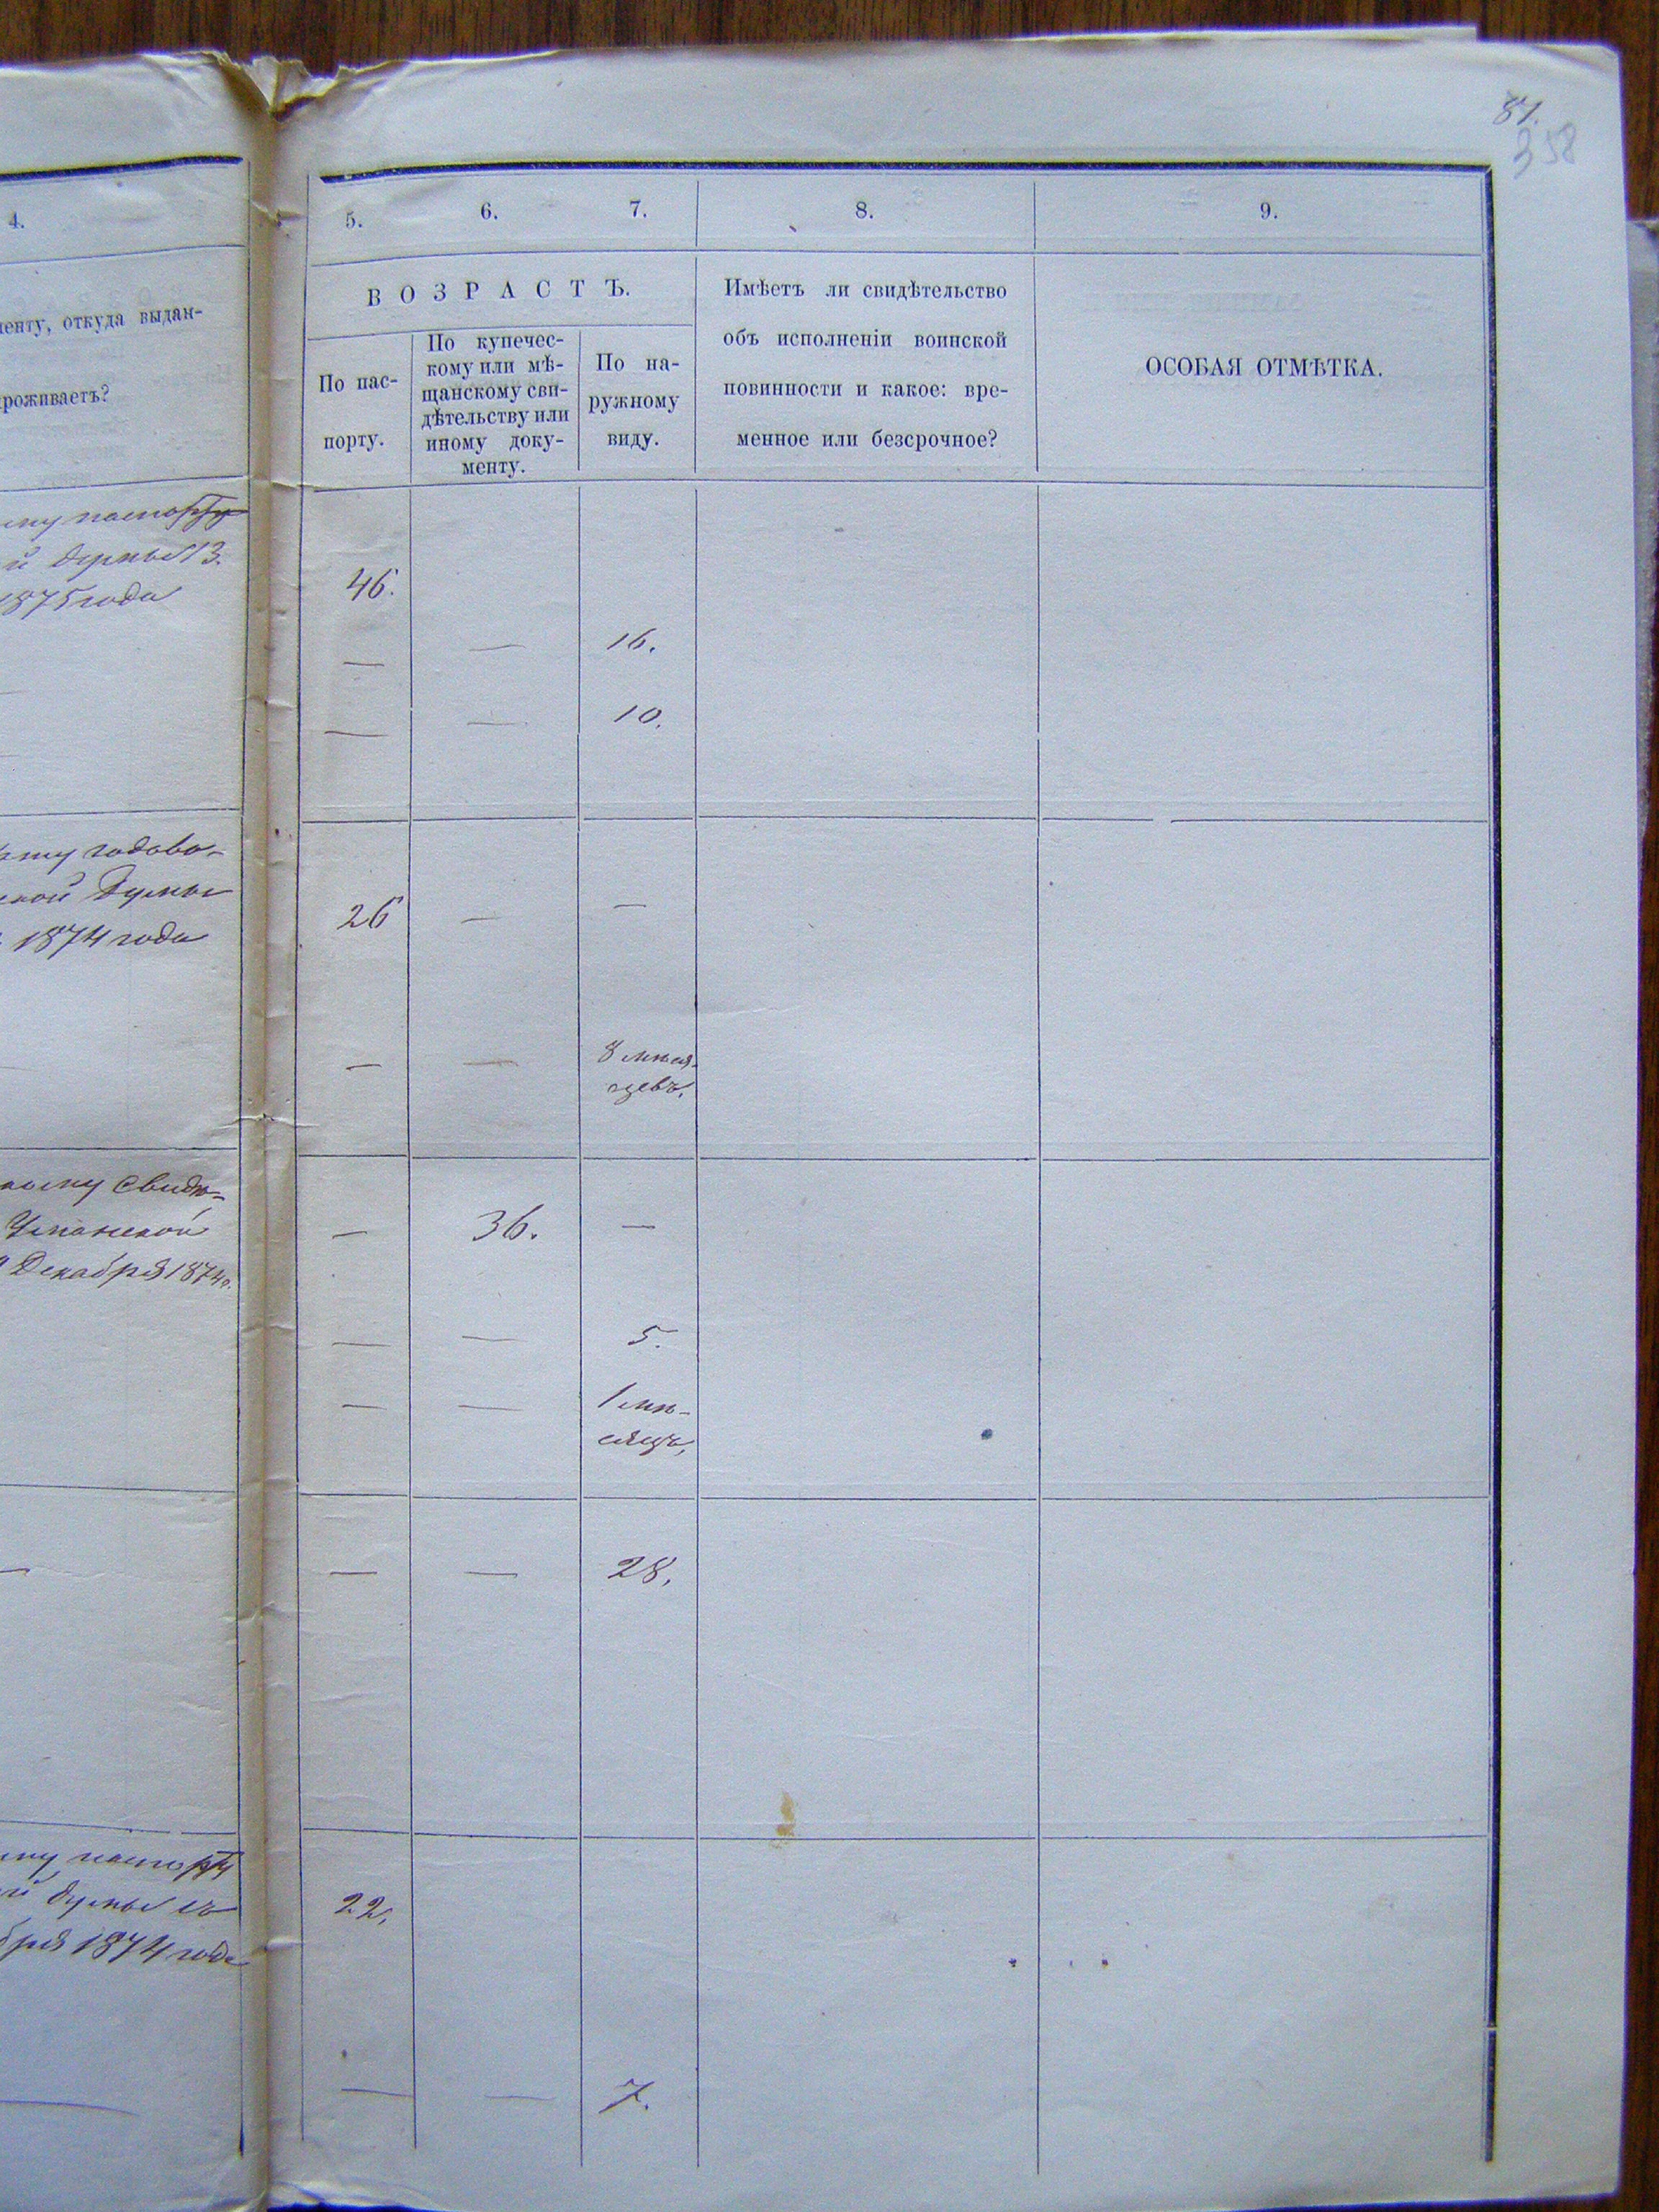 87.
358
4.
5. 6. 7. 8. 9.
откуда выдан-
ВОЗРАСТЪ.
По пас-
порту.
По купечес-
кому или мѣ-
щанскому сви-
дѣтельству или
иному доку-
менту.
По на-
ружному
виду.
Имѣетъ ли свидѣтельство
объ исполненіи воинской
повинности и какое: вре-
менное или безсрочное?
ОСОБАЯ ОТМѢТКА.
паспорту
й думы 13.
1875 года
46.
— — 16.
— — 10.
годово-
ской Думы
1874 года
26 — —
— — 8 мѣся-
цевъ.
свидѣ-
Уманской
Декабря 1874 г.
— 36. —
— — 5.
— — 1 мѣ-
сяцъ.
— — — 28.
паспорту
й думы съ
бря 1874 года
22.
— — 7.